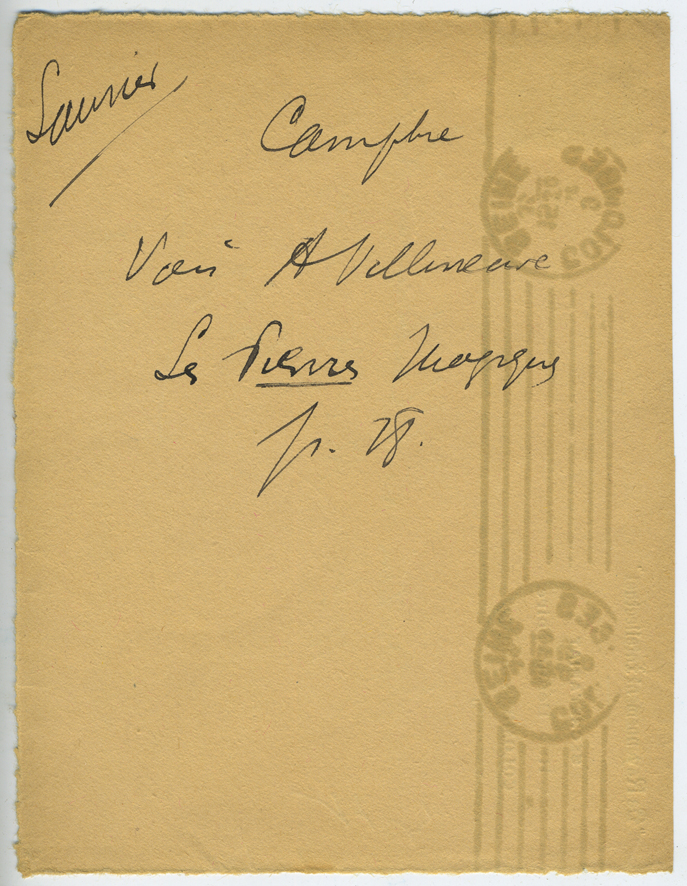 Saunier
Camphre
Voir A Villeneuve
Les Pierres Magiques
p. 28.
SEINE